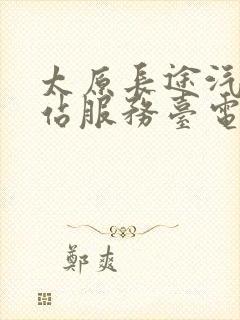 太原長途汽
佔服務臺電
鄭爽